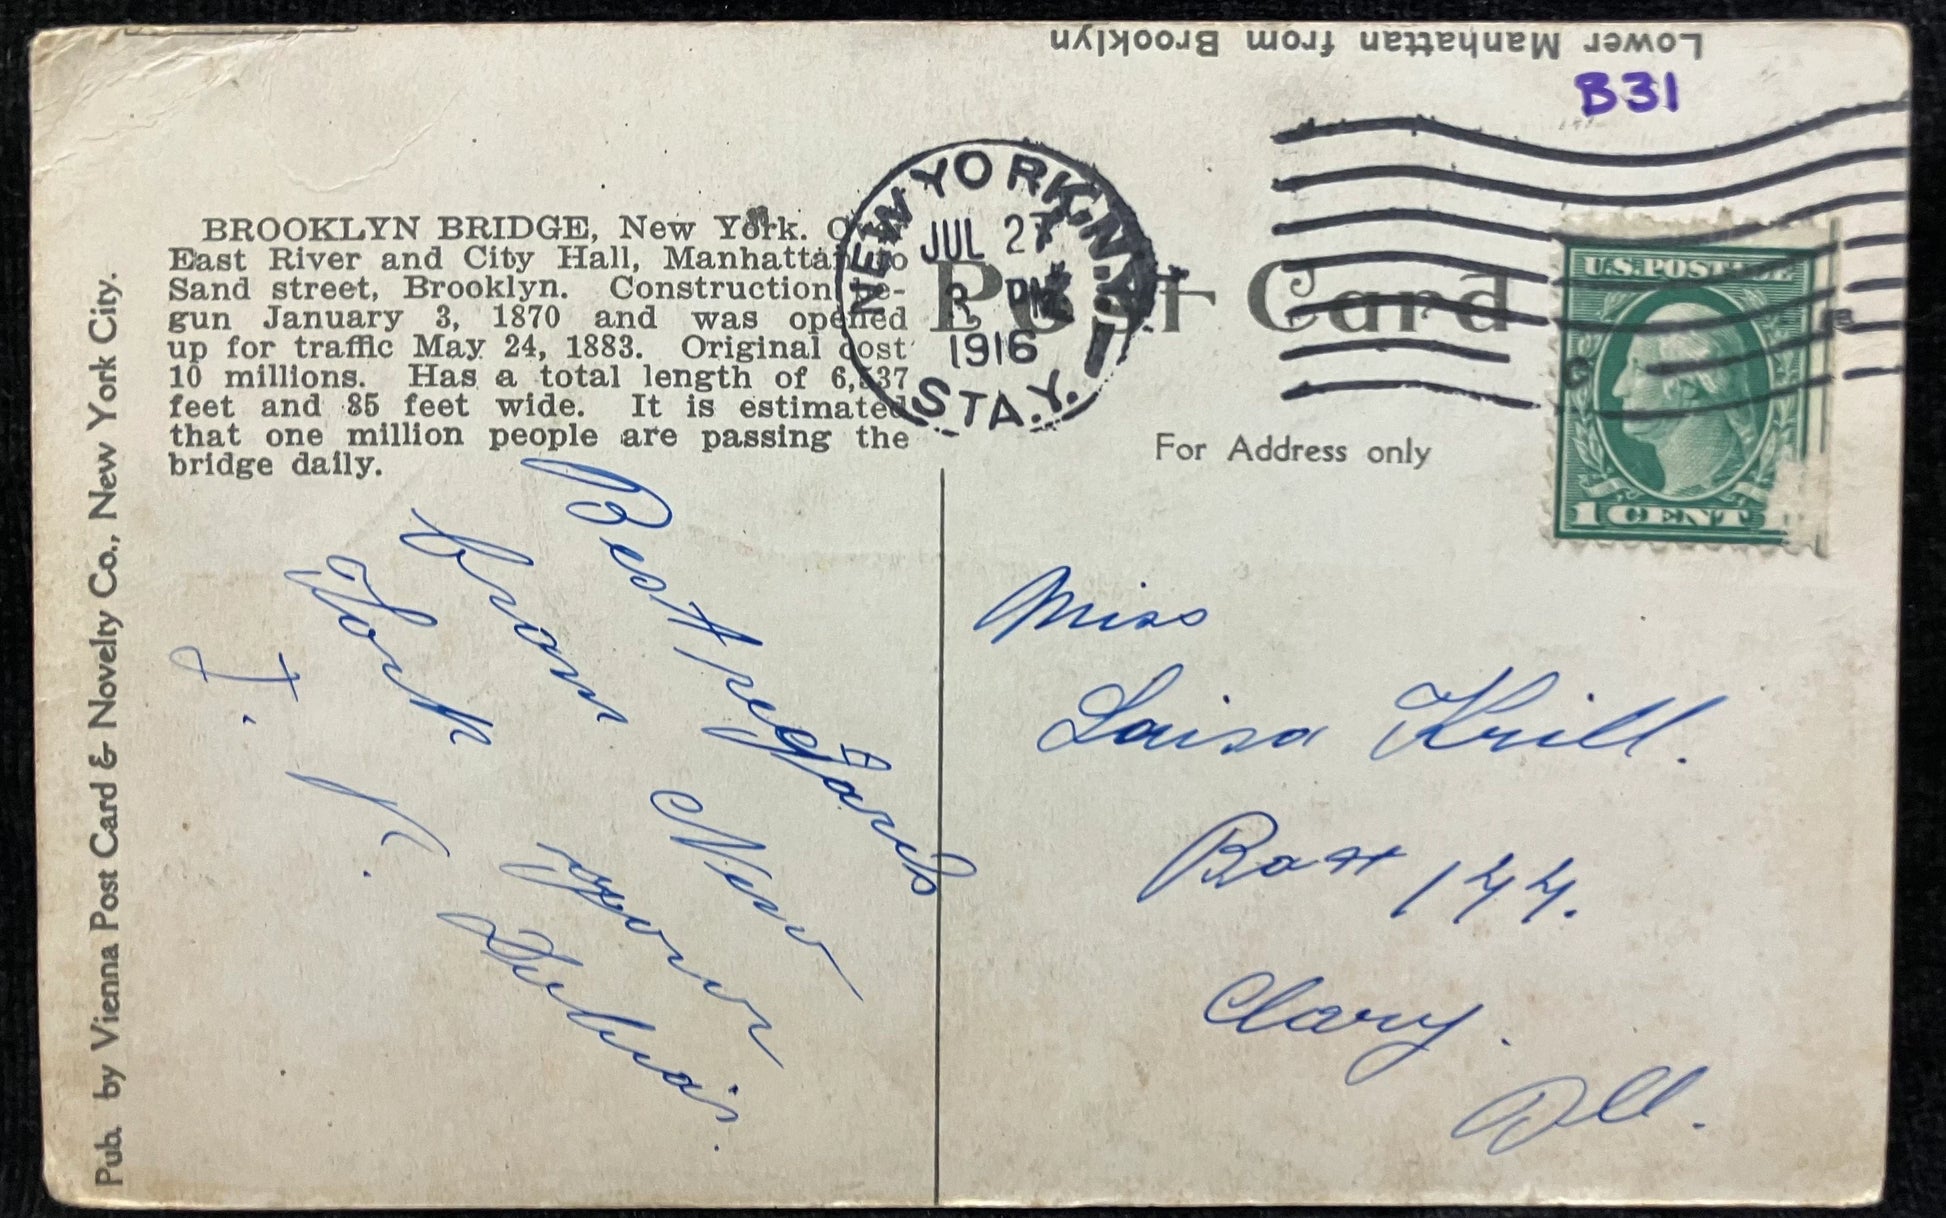 Lower Manhattan from Brooklyn
B31
NEW YORK, N.Y.
JUL 27
3 PM
1916
STA. Y.
U.S. POSTAGE
1 CENT
Post Card
For Address only
BROOKLYN BRIDGE, New York.
East River and City Hall, Manhattan to
Sand street, Brooklyn. Construction be-
gun January 3, 1870 and was opened
up for traffic May 24, 1883. Original cost
10 millions. Has a total length of 6,537
feet and 85 feet wide. It is estimated
that one million people are passing the
bridge daily.
Pub. by Vienna Post Card & Novelty Co., New York City.
Best regards
from New
York your
J. K.
Miss
Louisa Krill.
Box 144.
Clary.
Ill.